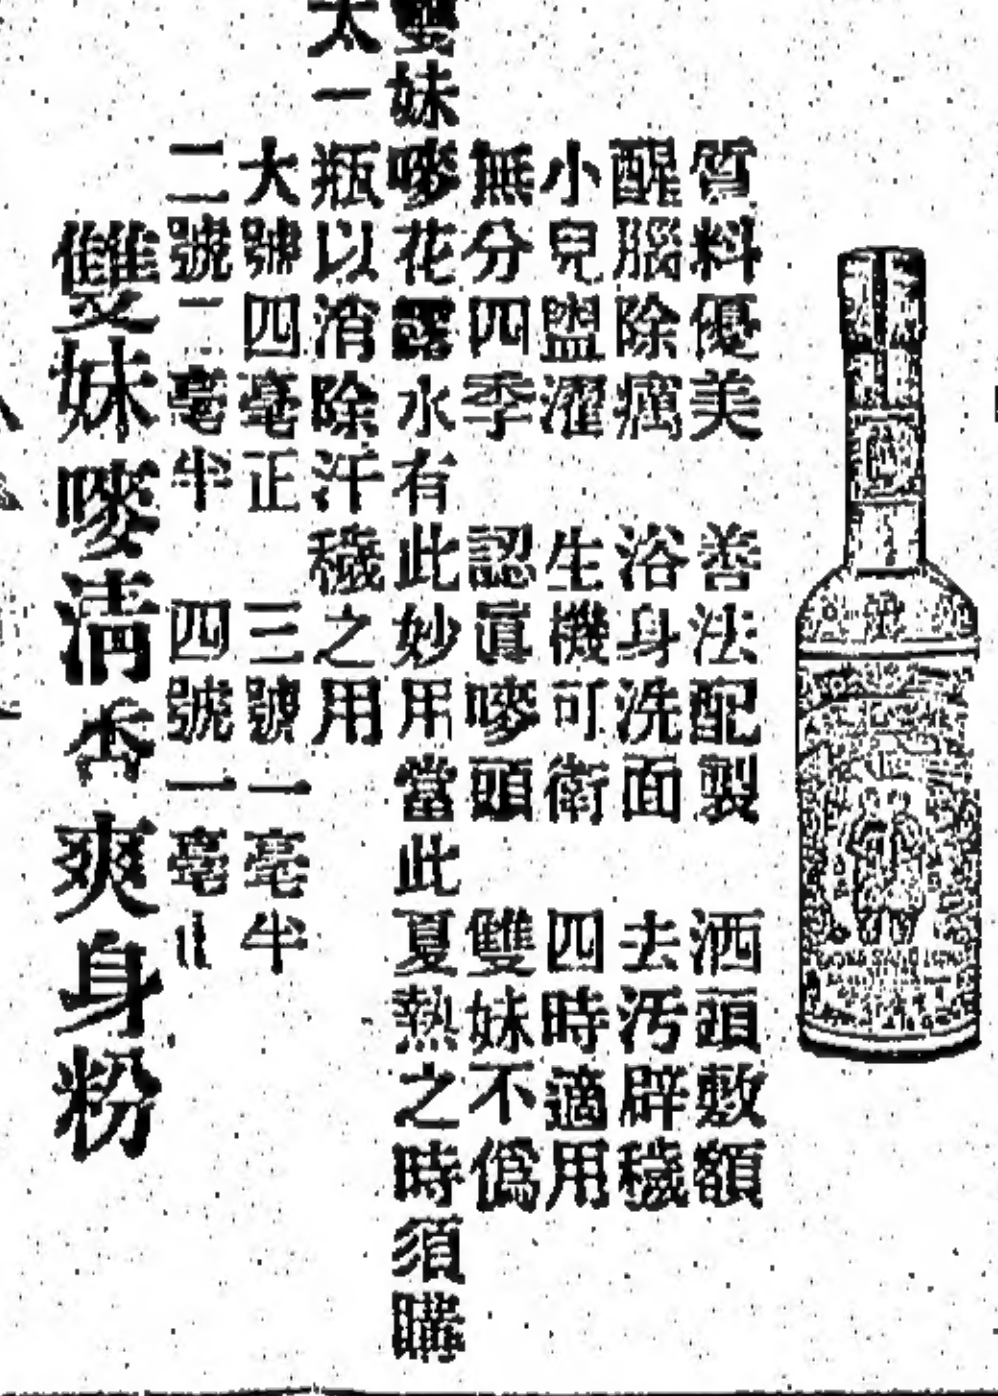 質料優美 善法配製 洒頭敷額
醒腦除癘 浴身洗面 去汚辟穢
小兒盥濯 生機可衛 四時適用
無分四季 認眞嘜頭 雙妹不僞
雙妹嘜花露水有此妙用當此夏熱之時須購
太一瓶以消除汗穢之用
大號四毫正 三號一毫半
二號二毫半 四號一毫〢
雙妹嘜淸香爽身粉